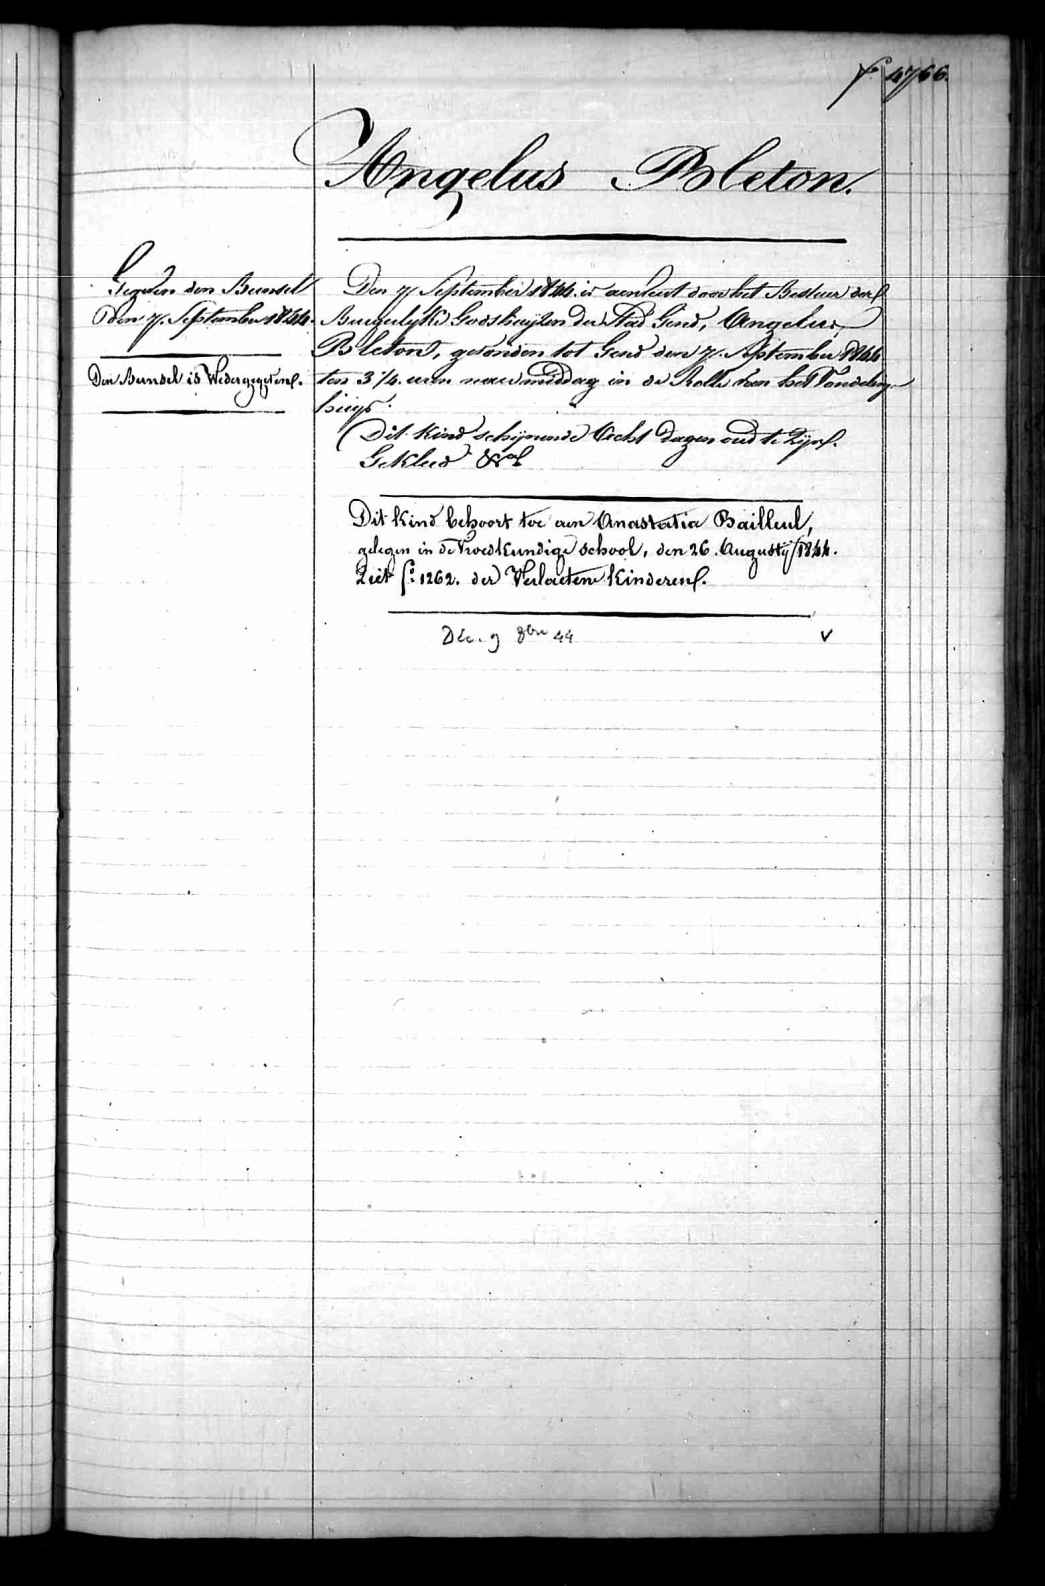 fº 4766.
Angelus Bleton.
Gegeven den Bunsel
den 7. September 1844.
Den Bunsel is Wedergegeven.
Den 7 September 1844. is aenveert door het Bestuer der
Burgerlyke Godshuyzen der Stad Gend, Angelus,
Bleton, gevonden tot Gend den 7. September 1844
ten 3 1/4. uren naermiddag in de Rolle van het Vondeling
huys.
Dit Kind schynende Acht dagen oud te Zyn.
Gekleed &a
Dit Kind behoort toe aen Anastatia Bailleul,
gelegen in de Vroedkundige school, den 26. Augusty 1844.
Ziet fº 1262. der Verlaetene Kinderen.
Déc. 9 8bre 44 v